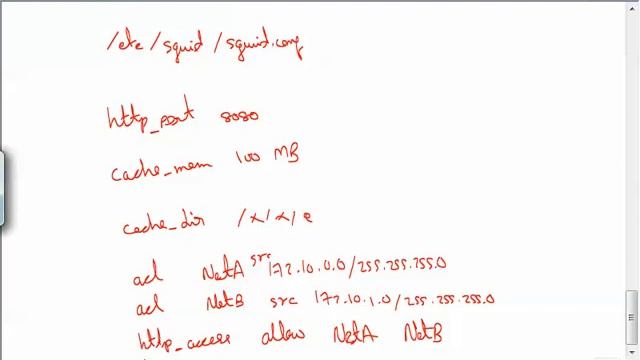 /etc/squid/squid.conf
http_port 8080
cache_mem 100 MB
cache_dir /x/x/e
acl NetA src 172.10.0.0/255.255.255.0
acl NetB src 172.10.1.0/255.255.255.0
http_access allow NetA NetB